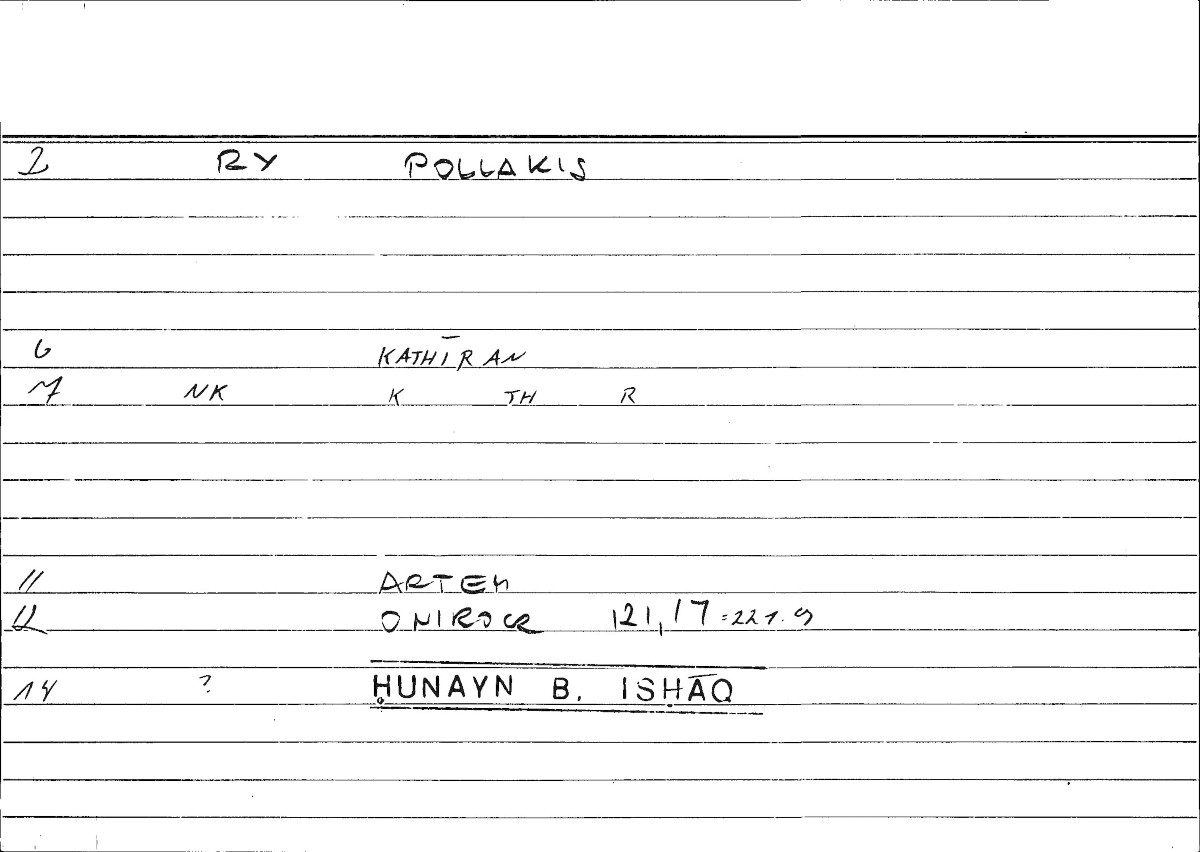 2 RY POLLAKIS
6 KATHĪRAN
7 NK K TH R
11 ARTEM
12 ONIROCR 121,17 =221.9
14 ? ḤUNAYN B. ISḤĀQ